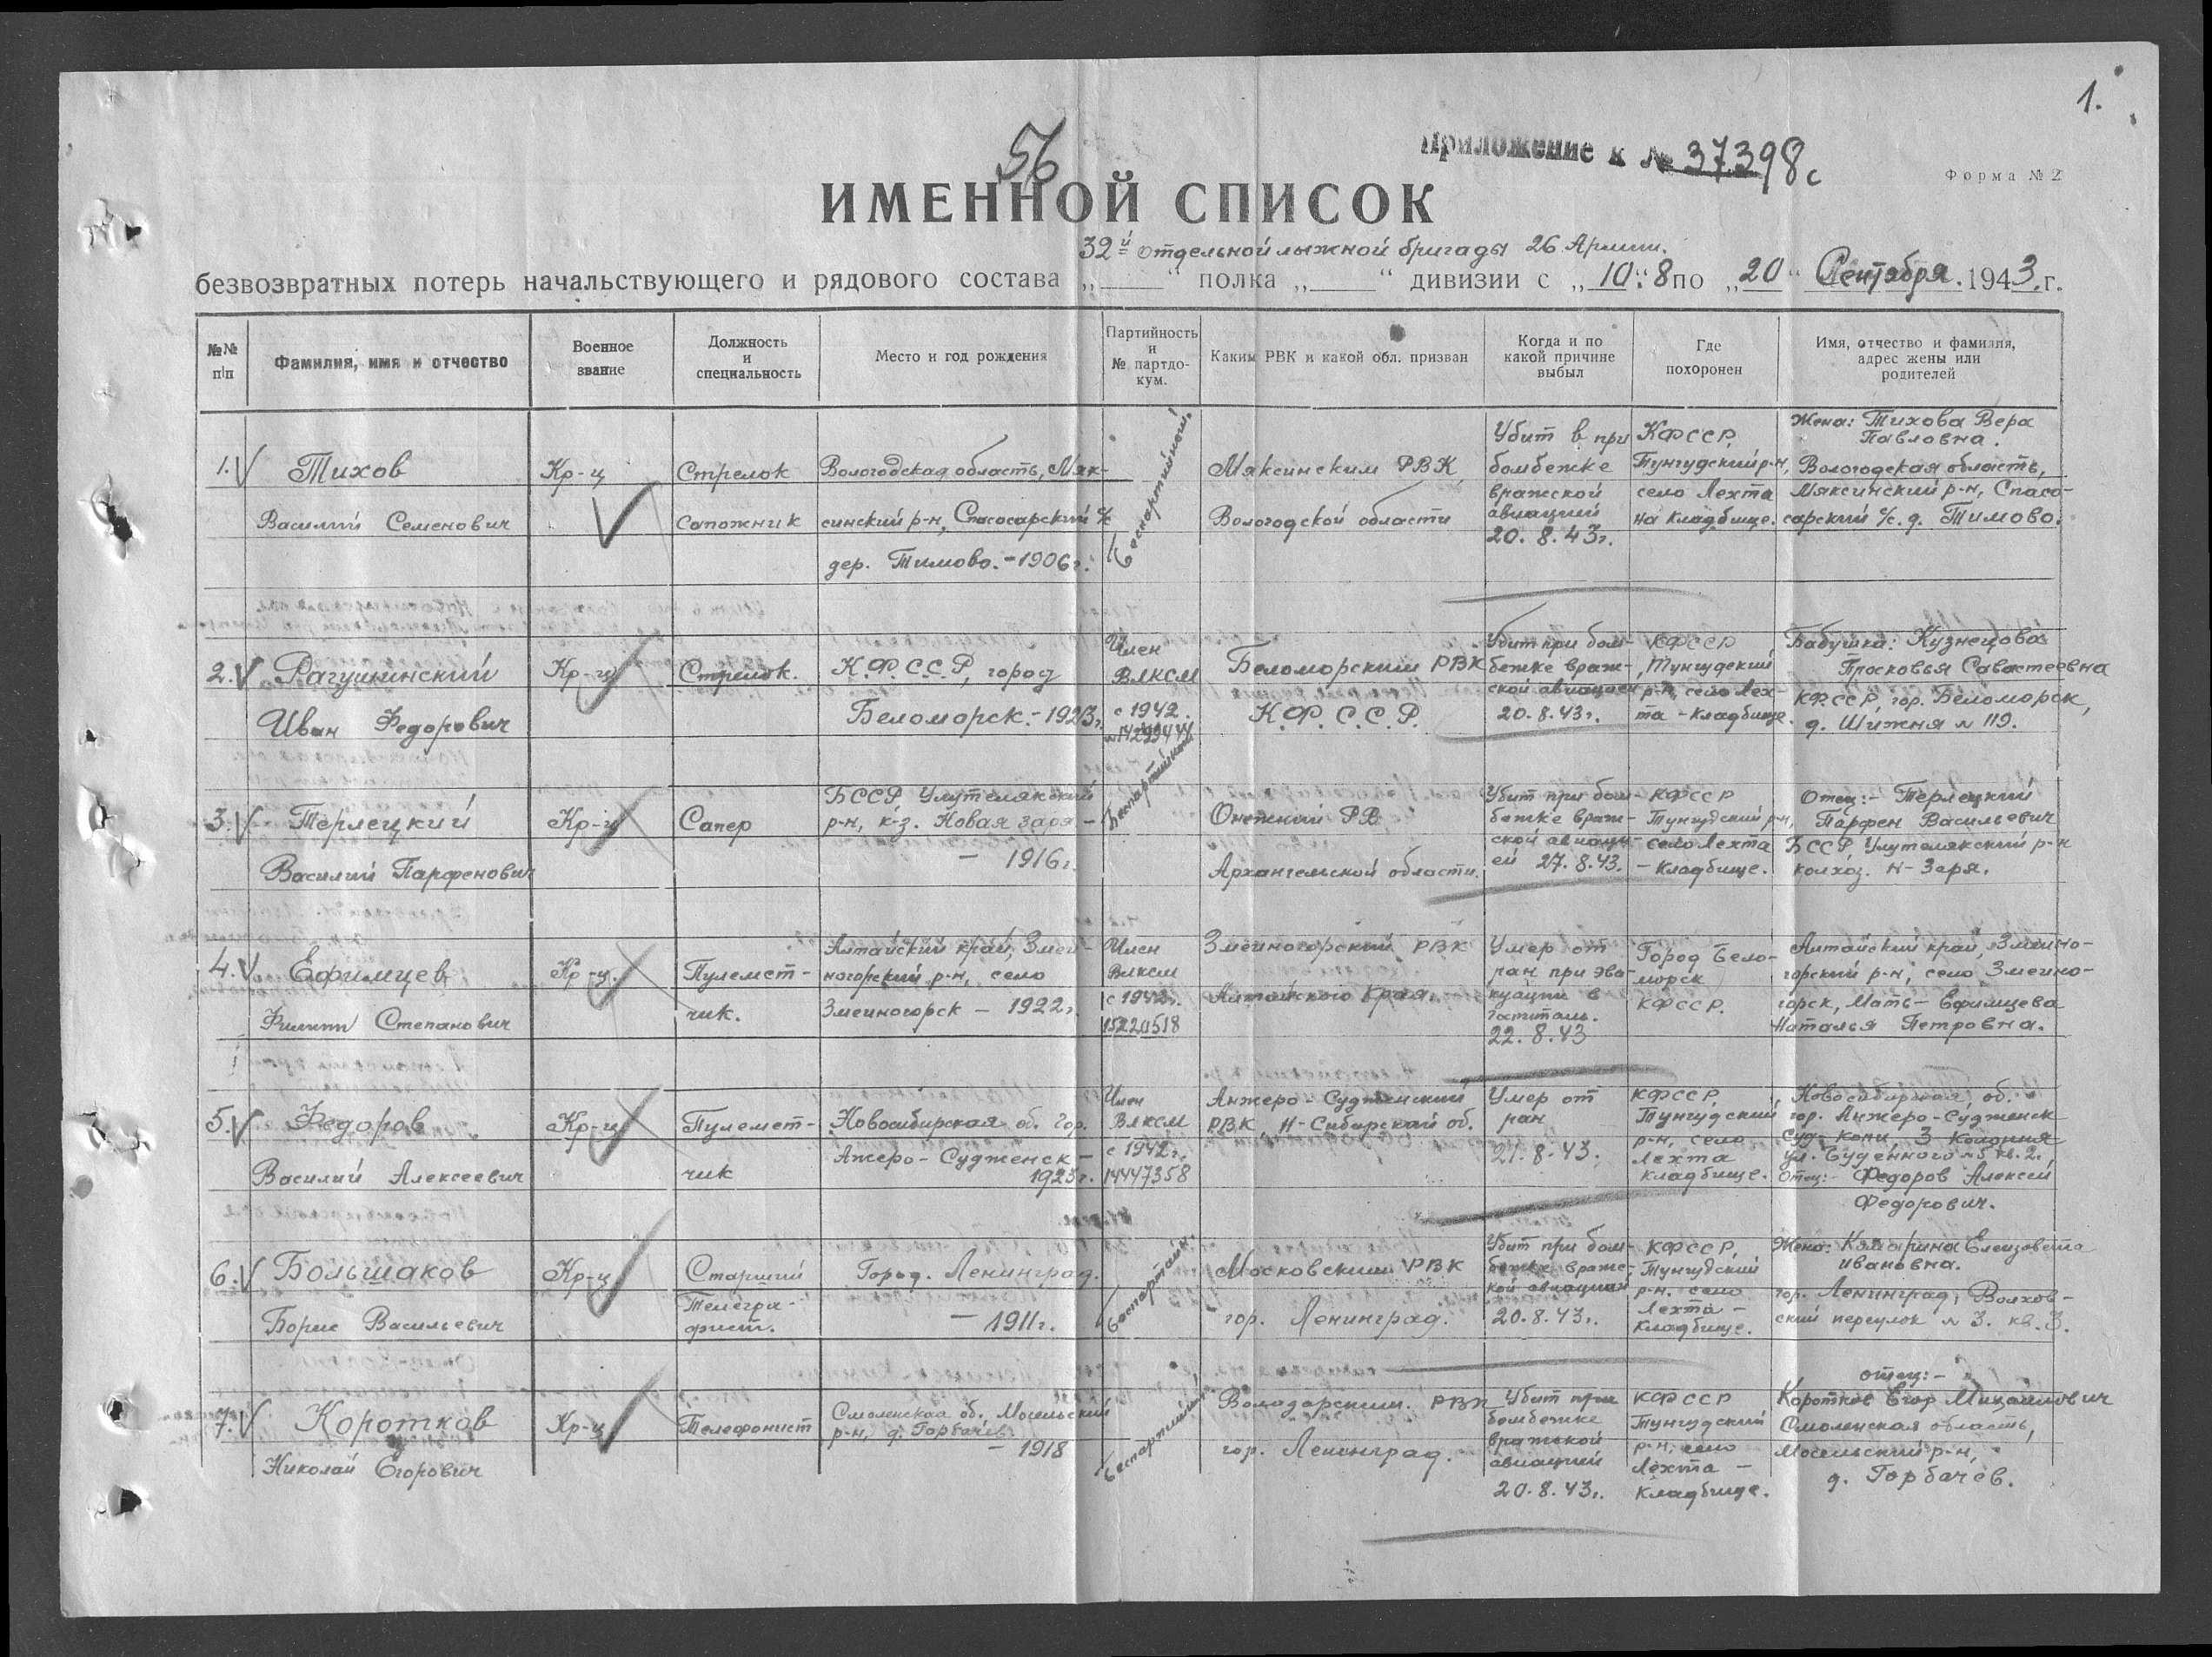 1.
56
Приложение к № 37398с
Форма № 2
ИМЕННОЙ СПИСОК
32й отдельной лыжной бригады 26 Армии.
безвозвратных потерь начальствующего и рядового состава „ “ полка „ “ дивизии с „10“.8 по „20“ Сентября. 1943.г.
№№ п|п
Фамилия, имя и отчество
Военное звание
Должность и специальность
Место и год рождения
Партийность и № партдо-кум.
Каким РВК и какой обл. призван
Когда и по какой причине выбыл
Где похоронен
Имя, отчество и фамилия, адрес жены или родителей
1.
Тихов
Василий Семенович
Кр-ц
Стрелок
сапожник
Вологодская область, Мяк-
синский р-н, Спасосарский с/с
дер. Тимово. - 1906г.
беспартийный
Мяксинским РВК
Вологодской области
Убит в при
бомбежке
вражской
авиацией
20.8.43г.
КФССР,
Тунгудский р-н,
село Лехта
на кладбище.
Жена: Тихова Вера
Павловна.
Вологодская область,
Мяксинский р-н, Спасо-
сарский с/с. д. Тимово.
2.
Рагушинский
Иван Федорович
Кр-ц
Стрелок.
К.Ф.С.С.Р, город
Беломорск. - 1923г.
Член
ВЛКСМ
с 1942.
Беломорским РВК
К.Ф.С.С.Р.
Убит при бом-
бежке враж-
ской авиацией
20.8.43г.
КФССР
Тунгудский
р-н, село Лех-
та - кладбище.
Бабушка: Кузнецова
Просковья Савастеевна
КФССР, гор. Беломорск,
д. Шижня № 119.
3.
Терлецкий
Василий Парфенович
Кр-ц
Сапер
БССР Улутелякский
р-н, к-з. Новая заря -
- 1916г.
беспартийный
Онежский РВ
Архангельской области.
Убит при бом-
бежке враж-
ской авиаци-
ей 27.8.43.
КФССР
Тунгудский р-н,
село Лехта
- кладбище.
Отец: - Терлецкий
Парфен Васильевич
БССР Улутелякский р-н
колхоз. Н-Заря.
4.
Ефимцев
Филипп Степанович
Кр-ц.
Пулемет-
чик.
Алтайский край, Змеи-
ногорский р-н, село
Змеиногорск - 1922г.
Член
ВЛКСМ
с 1942г.
15220518
Змеиногорский РВК
Алтайского края.
Умер от
ран при эва-
куации в
госпиталь.
22.8.43
Город Бело-
морск
КФССР.
Алтайский край, Змеино-
горский р-н, село Змеино-
горск, Мать - Ефимцева
Наталья Петровна.
5.
Федоров
Василий Алексеевич
Кр-ц.
Пулемет-
чик
Новосибирская об. гор.
Ажеро-Судженск -
1923г.
Член
ВЛКСМ
с 1942г.
14447358
Анжеро-Судженский
РВК, Н-Сибирской об.
Умер от
ран
21.8.43.
КФССР,
Тунгудский
р-н, село
Лехта
кладбище.
Новосибирская об.
гор. Анжеро-Судженск
Суд. копи, 3 Колония
ул. Буденного №5 кв.2.,
Отец: - Федоров Алексей
Федорович.
6.
Большаков
Борис Васильевич
Кр-ц
Старший
Телегра-
фист.
Город. Ленинград.
- 1911г.
беспартийн.
Московским РВК
гор. Ленинград.
Убит при бом-
бежке вражс-
кой авиации
20.8.43г.
КФССР,
Тунгудский
р-н. село
Лехта -
кладбище.
Жена: Комарина Елизавета
Ивановна.
гор. Ленинград, Волхов-
ский переулок № 3. кв.3.
7.
Коротков
Николай Егорович
Кр-ц
Телефонист
Смоленская об. Мосальский
р-н, д. Горбачёв
- 1918
беспартийный
Володарским. РВК
гор. Ленинград.
Убит при
бомбежке
вражской
авиацией
20.8.43г.
КФССР
Тунгудский
р-н, село
Лехта -
кладбище.
отец: -
Коротков Егор Михайлович
Смоленская область,
Мосальский р-н,
д. Горбачёв.